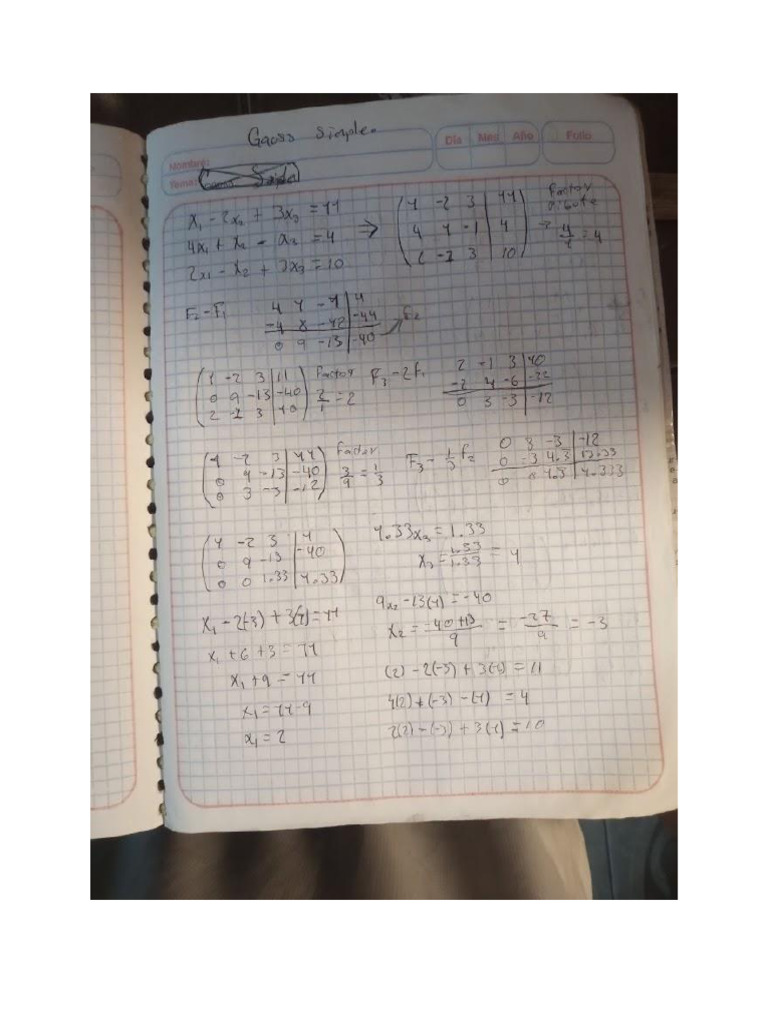 Gauss Simple.
Día Mes Año Folio
Nombre:
Tema:
x₁ - 2x₂ + 3x₃ = 11
4x₁ + x₂ - x₃ = 4
2x₁ - x₂ + 3x₃ = 10
⇒
1 -2 3 | 11
4 1 -1 | 4
2 -1 3 | 10
Factor
= 4/1 = 4
F₂ - F₁
4 1 -1 | 4
-4 8 -12 | -44
0 9 -13 | -40
F₂
1 -2 3 | 11
0 9 -13 | -40
2 -1 3 | 10
Factor
2/1 = 2
F₃ - 2F₁
2 -1 3 | 10
-2 4 -6 | -22
0 3 -3 | -12
1 -2 3 | 11
0 9 -13 | -40
0 3 -3 | -12
Factor
3/9 = 1/3
F₃ - 1/3 F₂
0 3 -3 | -12
0 -3 4.3 | 13.33
0 0 1.33 | 1.333
1 -2 3 | 11
0 9 -13 | -40
0 0 1.33 | 1.33
1.33x₃ = 1.33
x₃ = 1.33/1.33 = 1
9x₂ - 13(1) = -40
x₂ = -40+13/9 = -27/9 = -3
x₁ - 2(-3) + 3(1) = 11
x₁ + 6 + 3 = 11
x₁ + 9 = 11
x₁ = 11 - 9
x₁ = 2
(2) - 2(-3) + 3(1) = 11
4(2) + (-3) - (1) = 4
2(2) - (-3) + 3(1) = 10